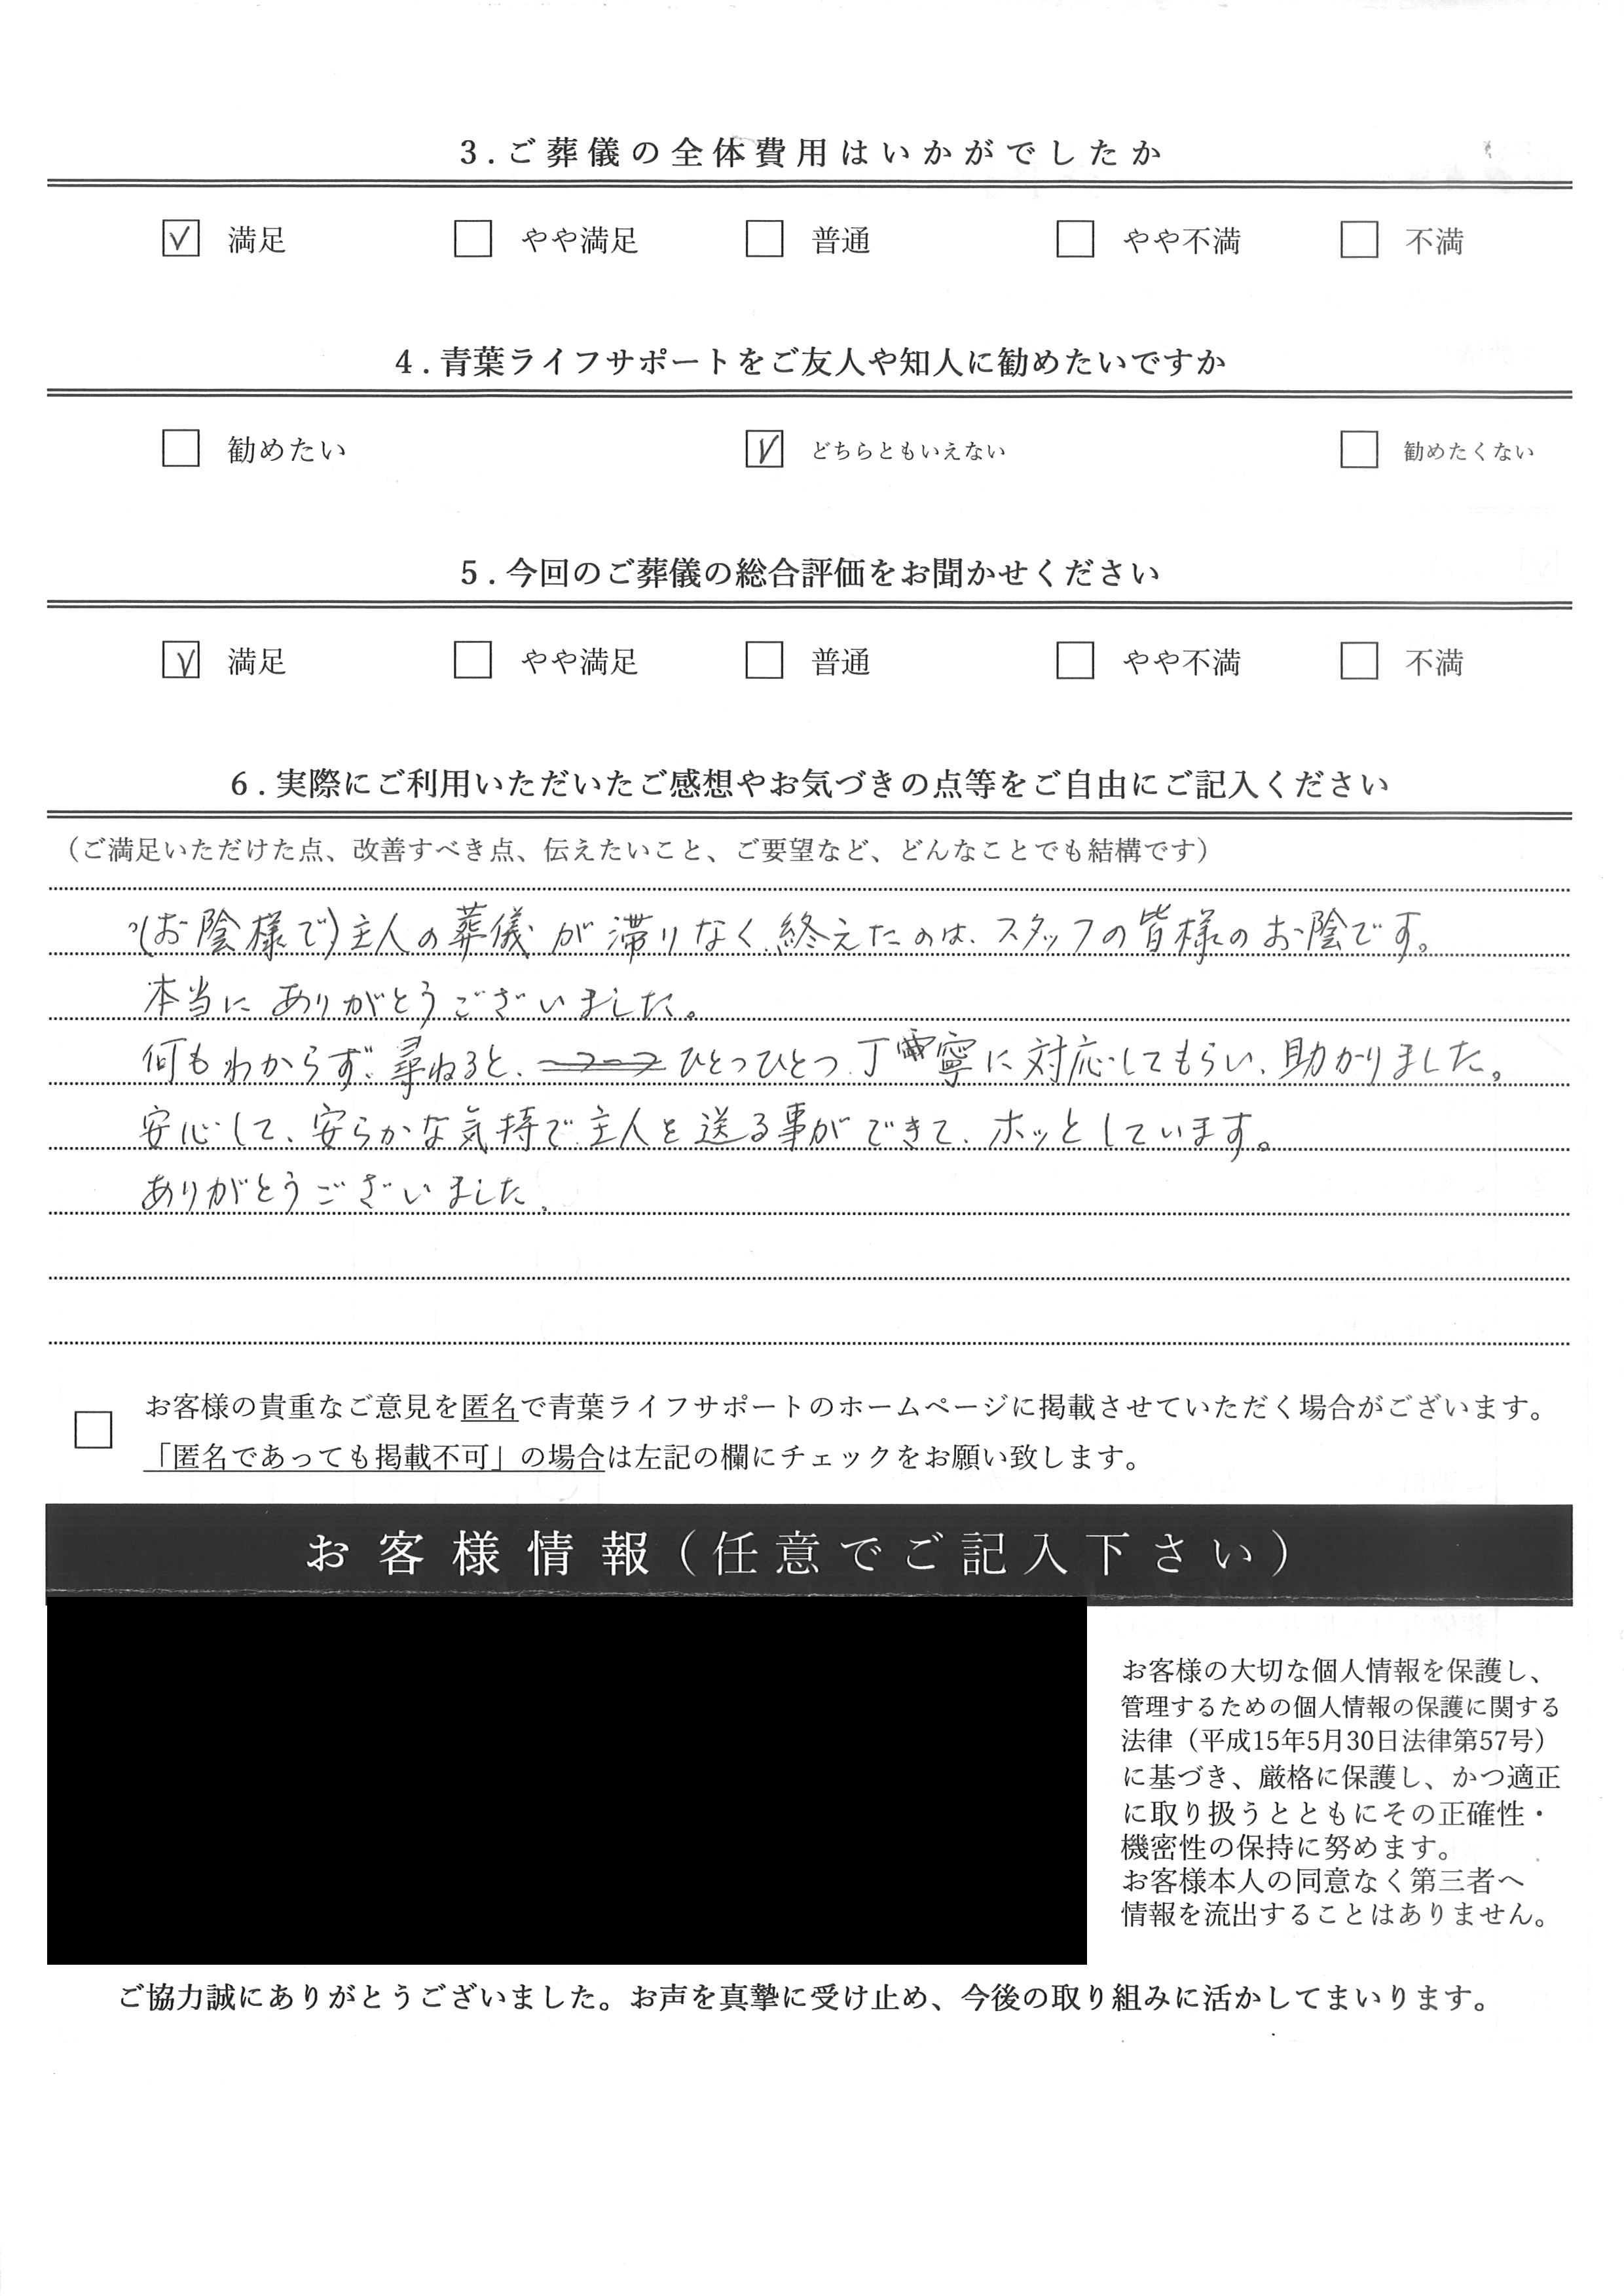 3.ご葬儀の全体費用はいかがでしたか
満足 やや満足 普通 やや不満 不満
4.青葉ライフサポートをご友人や知人に勧めたいですか
勧めたい どちらともいえない 勧めたくない
5.今回のご葬儀の総合評価をお聞かせください
満足 やや満足 普通 やや不満 不満
6.実際にご利用いただいたご感想やお気づきの点等をご自由にご記入ください
（ご満足いただけた点、改善すべき点、伝えたいこと、ご要望など、どんなことでも結構です）
(お陰様で)主人の葬儀が滞りなく、終えたのは、スタッフの皆様のお陰です。
本当にありがとうございました。
何もわからず、尋ねると、ひとつひとつ丁寧に対応してもらい、助かりました。
安心して、安らかな気持で主人を送る事ができて、ホッとしています。
ありがとうございました、
お客様の貴重なご意見を匿名で青葉ライフサポートのホームページに掲載させていただく場合がございます。
「匿名であっても掲載不可」の場合は左記の欄にチェックをお願い致します。
お客様情報（任意でご記入下さい）
お客様の大切な個人情報を保護し、
管理するための個人情報の保護に関する
法律（平成15年5月30日法律第57号）
に基づき、厳格に保護し、かつ適正
に取り扱うとともにその正確性・
機密性の保持に努めます。
お客様本人の同意なく第三者へ
情報を流出することはありません。
ご協力誠にありがとうございました。お声を真摯に受け止め、今後の取り組みに活かしてまいります。